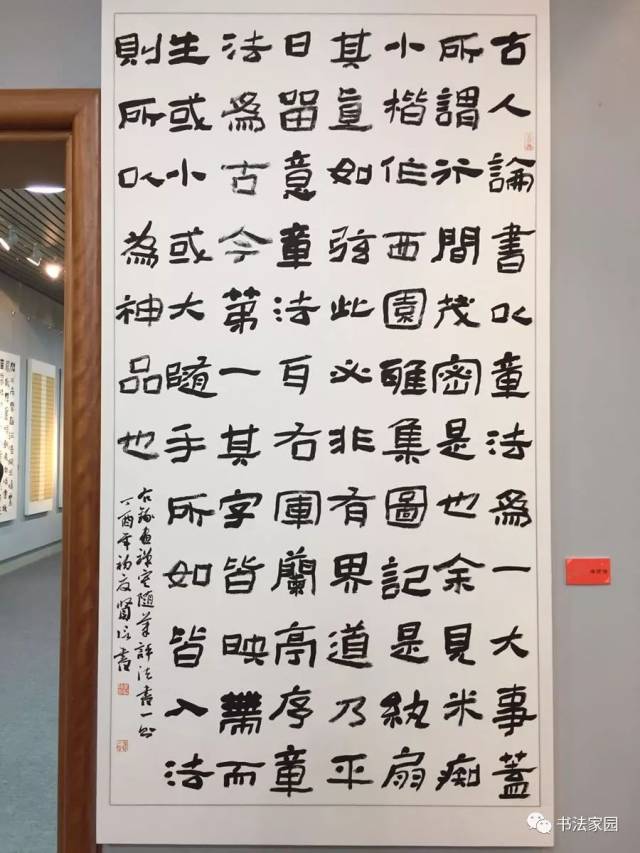 古人論書以章法為一大事蓋
所謂行間茂密是也余見米癡
小楷作西園雅集圖記是紈扇
其直如弦此必非有界道乃平
日留意章法耳右軍蘭亭序章
法為古今第一其字皆映帶而
生或小或大隨手所如皆入法
則所以為神品也
右錄畫禪室隨筆評法書一則
丁酉年初夏賢書
书法家园